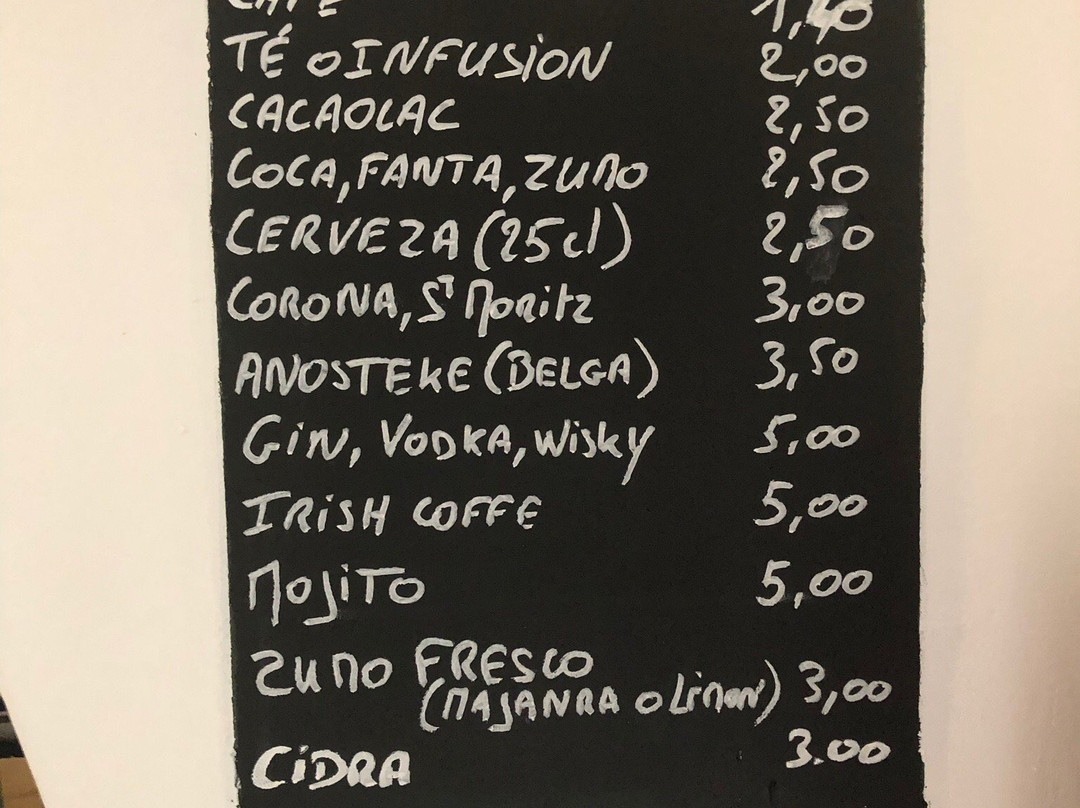 CAFE 1,40
TÉ o INFUSION 2,00
CACAOLAC 2,50
COCA, FANTA, ZUMO 2,50
CERVEZA (25cl) 2,50
CORONA, ST MORITZ 3,00
ANOSTEKE (BELGA) 3,50
GiN, VODKA, WiSky 5,00
IRiSH COFFE 5,00
MOJiTO 5,00
ZUMO FRESCO
(MAJANRA o Limon) 3,00
CiDRA 3.00